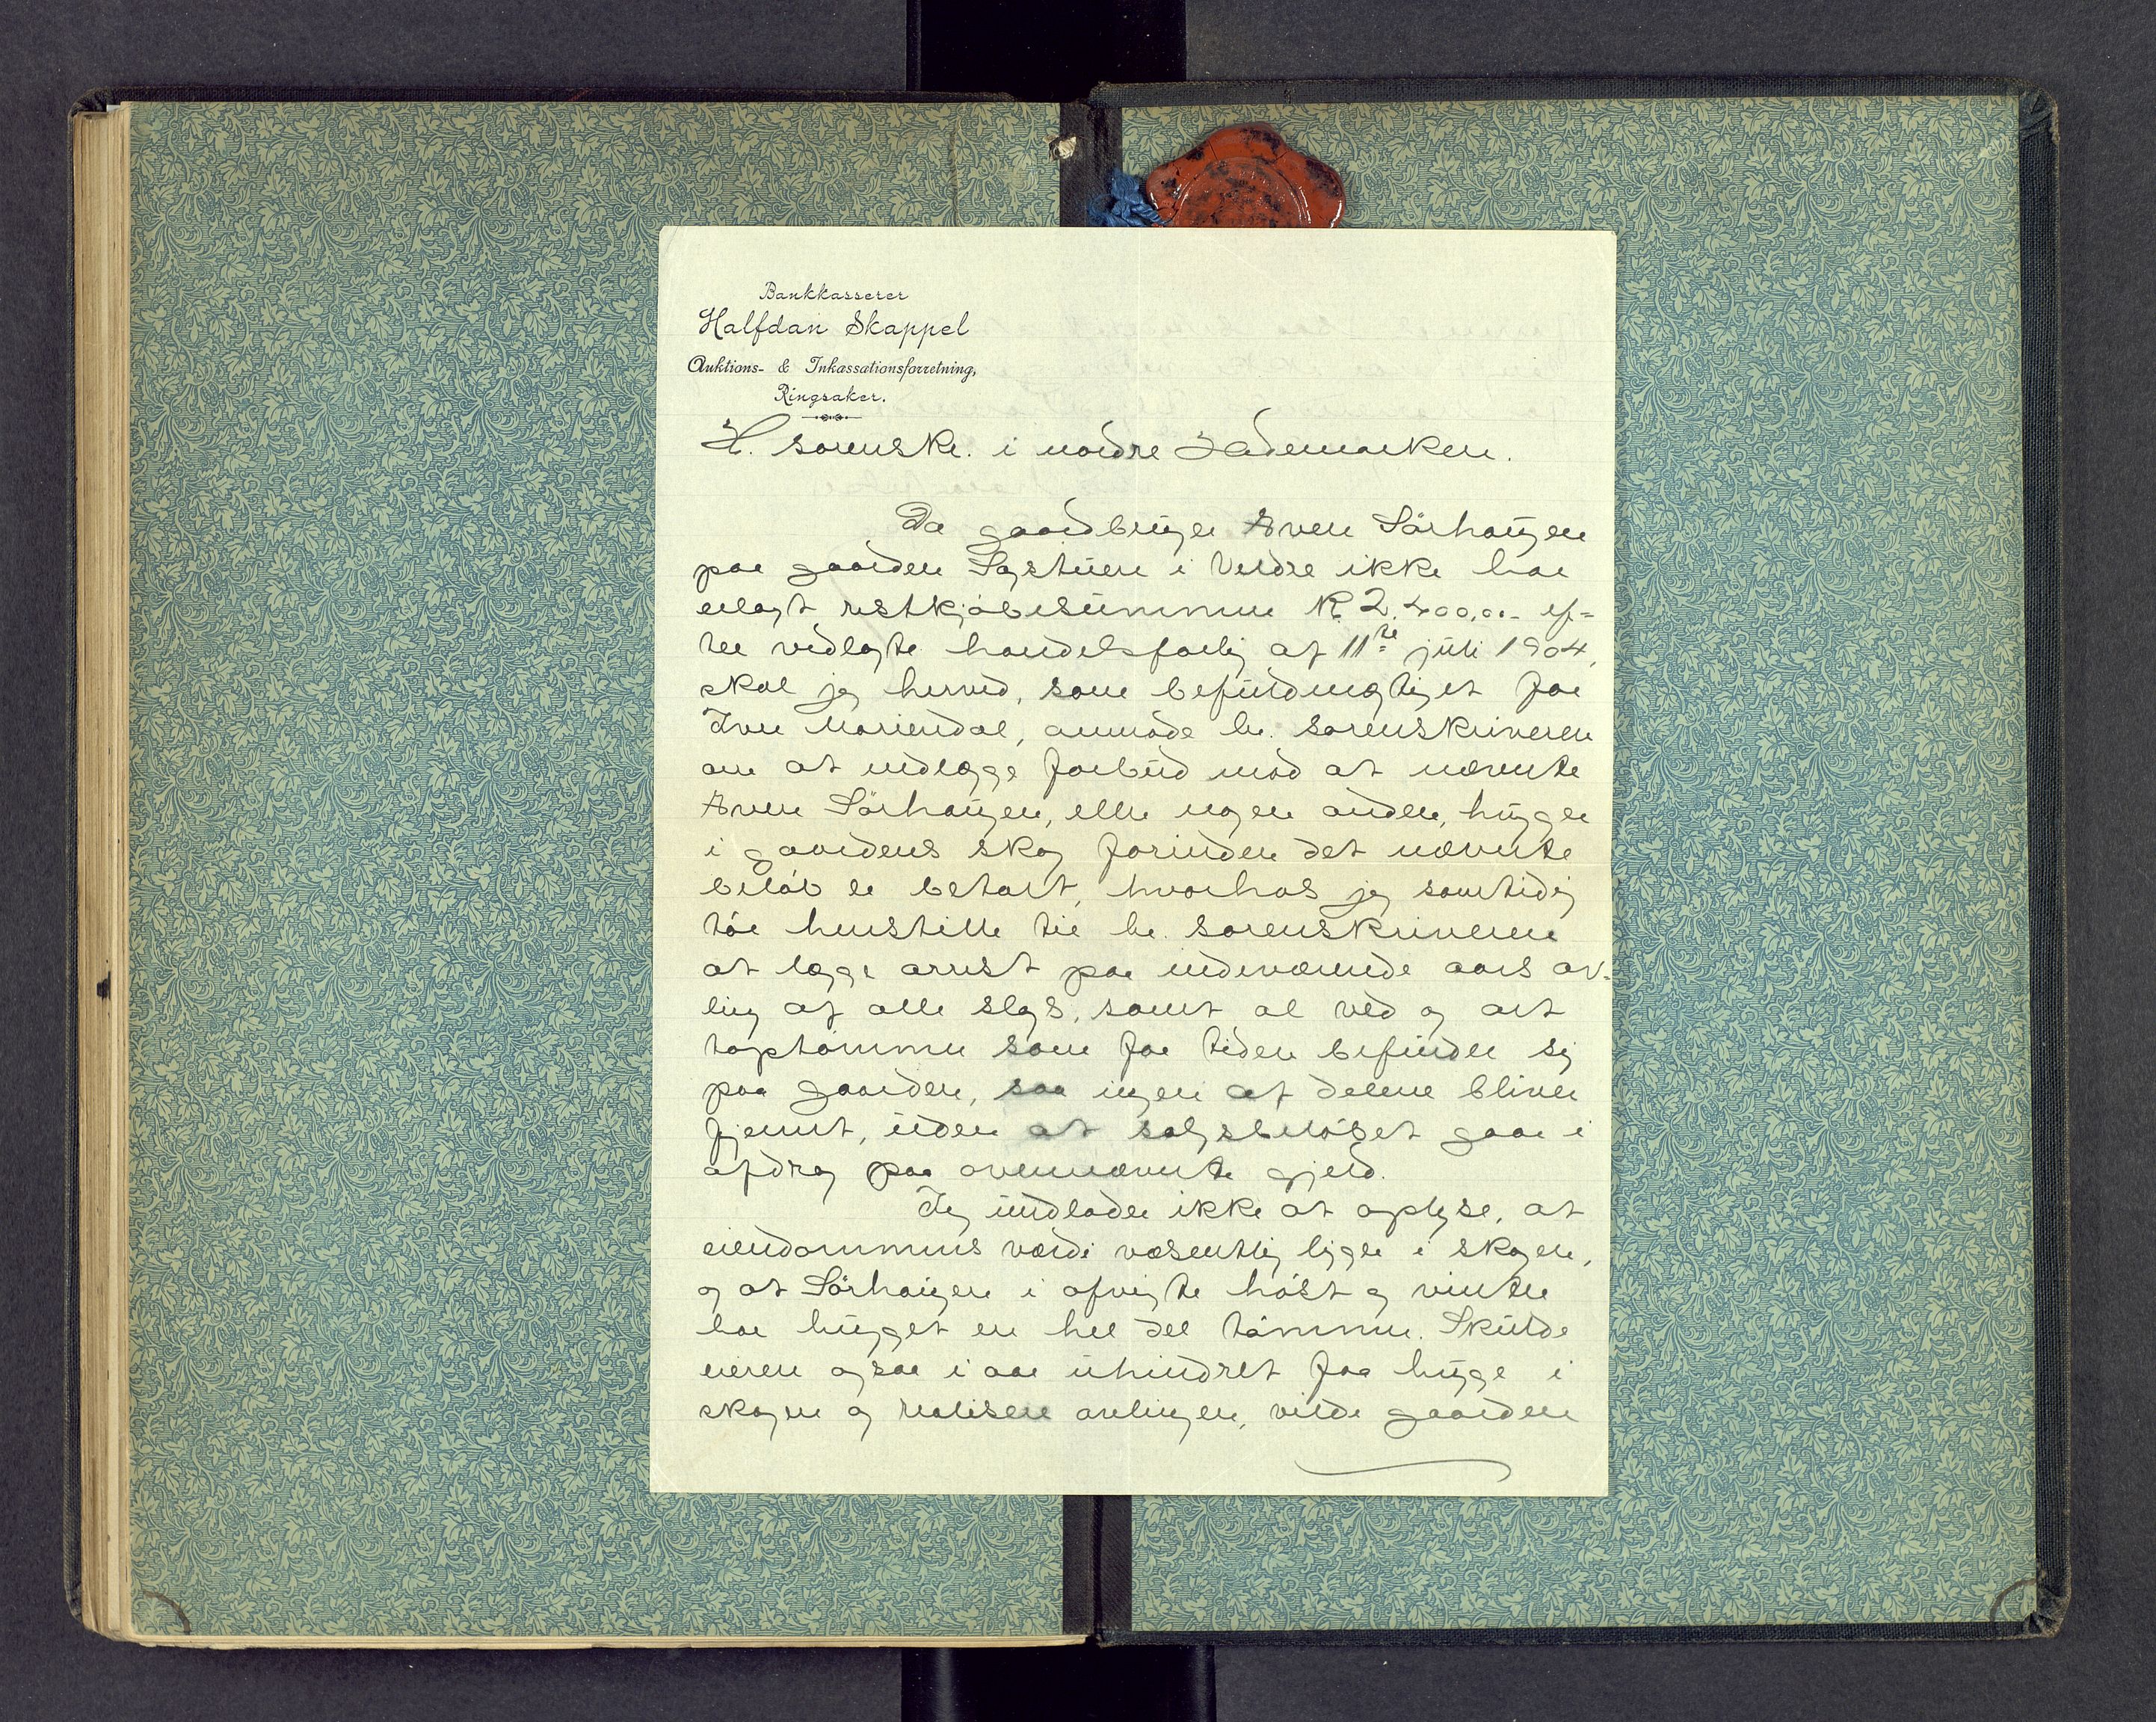 Bankkasserer
Halfdan Skappel
Auktions- & Inkassationsforretning,
Ringsaker.
H. sorenskr. i nordre Hedemarken.
Da gaardbruger Even Sörhaugen
paa gaarden Lystuen i Veldre ikke har
erlagt restkjöbesummen Kr 2.400,00- ef=
ter vedlagte handelsforlig af 11te juli 1904,
skal jeg herved, som befuldmægtiget for
Iver Mariendal, anmode hr. sorenskriveren
om at nedlægge forbud mod at nævnte
Even Sörhaugen, eller nogen anden, hugger
i gaardens skog forinden det nævnte
belöb er betalt, hvorhos jeg samtidig
tör henstille til hr. sorenskriveren
at lægge arrest paa indeværende aars av-
ling af alle slags, samt al ved og alt
toptömmer som for tiden befinder sig
paa gaarden, saa ingen af delene bliver
fjernet, uden at salgsbelöbet gaar i
afdrag paa ovennævnte gjeld.
Jeg undlader ikke at oplyse, at
eiendommens værdi væsentlig ligger i skogen,
og at Sörhaugen i afvigte höst og vinter
har hugget en hel del tömmer. Skulde
eieren ogsaa i aar uhindret faa hugge i
skogen og realisere avlingen, vilde gaarden